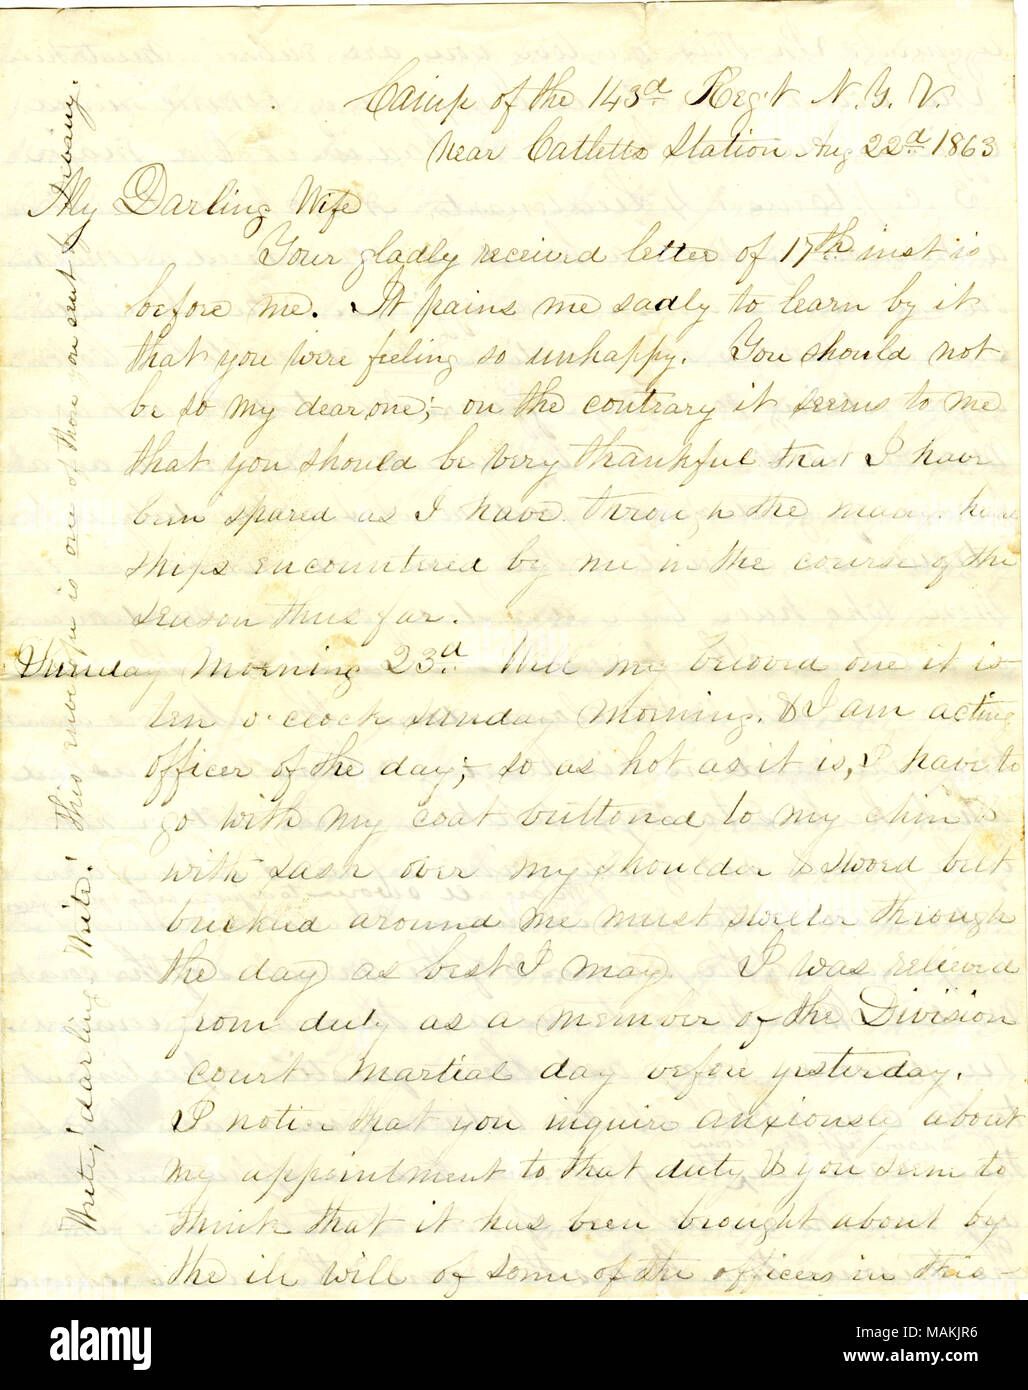 Camp of the 143d Regt N. Y. V.
near Catletts Station Aug 22d 1863
My Darling Wife
Your gladly received letter of 17th inst is
before me. It pains me sadly to learn by it
that you were feeling so unhappy. You should not
be so my dear one;- on the contrary it seems to me
that you should be very thankful that I have
been spared as I have through the many hard
ships encountered by me in the course of the
season thus far.
Sunday Morning 23d Well my beloved one it is
ten o'clock Sunday morning. & I am acting
officer of the day;- so as hot as it is, I have to
go with my coat buttoned to my chin &
with sash over my shoulder & sword belt
buckled around me must swelter through
the day as best I may. I was relieved
from duty as a member of the Division
court martial day before yesterday.
I notice that you inquire anxiously about
my appointment to that duty & you seem to
think that it has been brought about by
the ill will of some of the officers in this-
Write, darling. Write! This envelope is one of those you sent by
alamy stock photo
a
alamy
MAKJR6
www.alamy.com